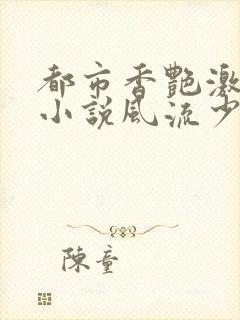 都市香艷激
小說風流少
陳童